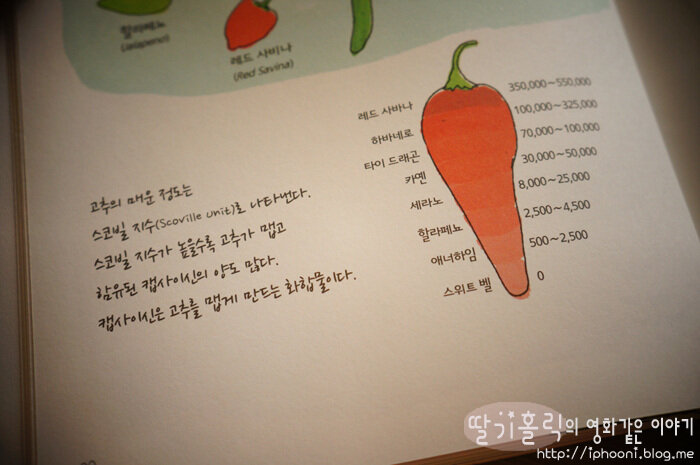 할라페뇨
(Jalapeno)
레드 사비나
(Red Savina)
고추의 매운 정도는
스코빌 지수(Scoville unit)로 나타낸다.
스코빌 지수가 높을수록 고추가 맵고
함유된 캡사이신의 양도 많다.
캡사이신은 고추를 맵게 만드는 화합물이다.
레드 사바나 350,000~550,000
하바네로 100,000~325,000
타이 드래곤 70,000~100,000
카옌 30,000~50,000
세라노 8,000~25,000
할라페뇨 2,500~4,500
애너하임 500~2,500
스위트 벨 0
딸기홀릭의 영화같은 이야기
http://iphooni.blog.me